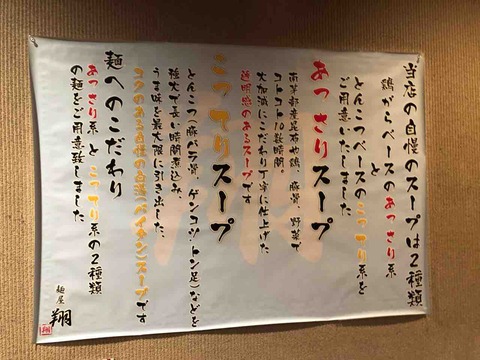 当店の自慢のスープは2種類
鶏がらベースのあっさり系
と
とんこつベースのこってり系を
ご用意いたしました
あっさりスープ
コトコト10数時間。
大阪流にこだわり丁寧に仕上げた
透明感のあるスープです
こってりスープ
とんこつ(豚バラ骨、ゲンコツ、トン足)などを
強火で長い時間煮込み、
うま味を最大限に引き出した
コクのある自慢の白湯(パイタン)スープです
麺へのこだわり
あっさり系とこってり系の2種類
の麺をご用意致しました
麺屋 翔